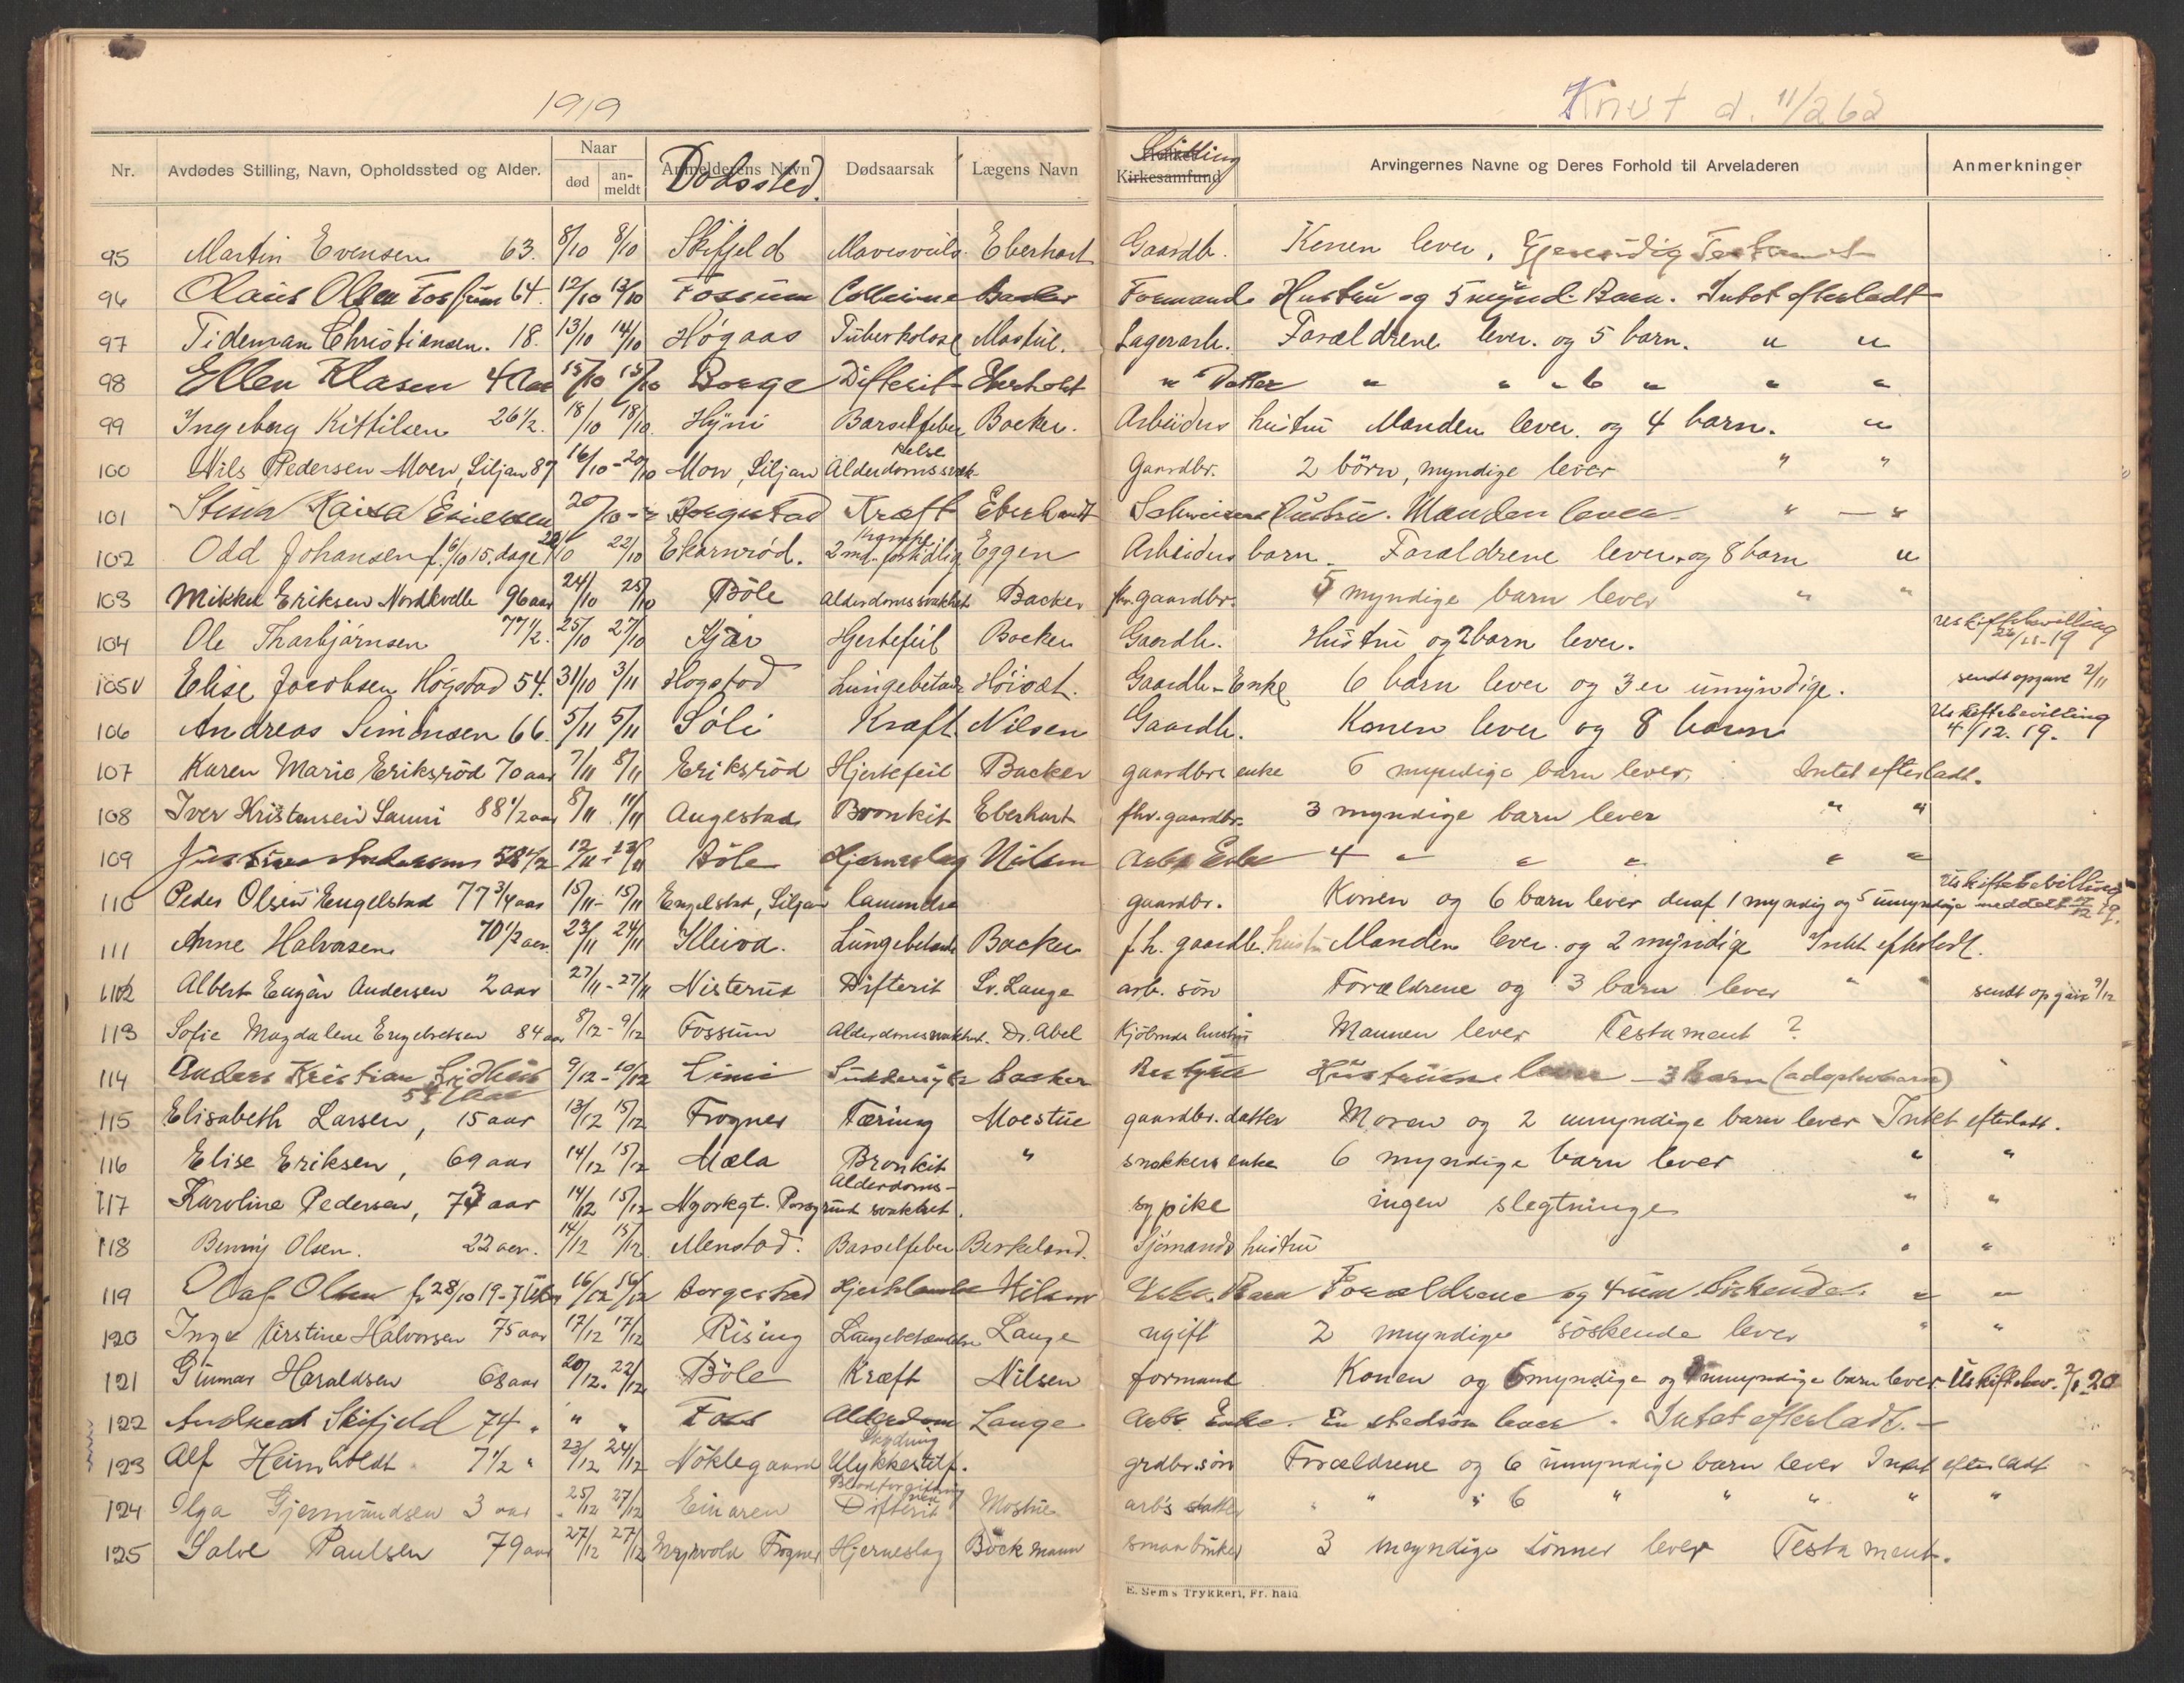 1919
Knut d. 11/2 62
Nr. Avdødes Stilling, Navn, Opholdssted og Alder. Naar død anmeldt Anmelderens Navn Dødssted. Dødsaarsak Lægens Navn Hvilket Kirkesamfund Stilling Arvingernes Navne og Deres Forhold til Arveladeren Anmerkninger
95 Martin Evensen 63. 8/10 8/10 Skifjeld Eberhart Gaardb. Konen lever, Gjensidig Testament
96 Olaus Olsen Fossum 64. 12/10 13/10 Fossum Backer Formand Hustru og 5 mynd. Barn. Intet efterladt
97 Tideman Christiansen. 18. 13/10 14/10 Høgaas Tuberkolose Mostue. Lagerarb. Forældrene lever. og 5 barn. " "
98 Ellen Klasen 4 aar 15/10 15/10 Borge Difterit Eberholt " Datter " " " 6 " " "
99 Ingeborg Kittilsen 26 1/2. 18/10 18/10 Hyni Barselfeber Backer. Arbeiders hustru Manden lever. og 4 barn. "
100 Nils Pedersen Moen, Siljan 87 16/10 - 20/10 Moen, Siljan Alderdomssvækkelse Gaardbr. 2 börn, myndige lever " "
101 Stina Kaisa 20/10 - " Borgestad Kræft Eberhardt Hustru. Manden lever " — "
102 Odd Johansen f. 6/10 15. dage 22/10 22/10 Ekornrød. Krampe 2 md. fortidlig Eggen Arbeiders barn. Forældrene lever. og 8 barn "
103 Mikkel Eriksen Nordkvelle 96 aar 24/10 25/10 Böle Alderdomssvakhet Backer fhv. gaardbr. 5 myndige barn lever " "
104 Ole Thorbjørnsen 77 1/2. 25/10 27/10 Kjær Hjertefeil Backer Gaardb. Hustru og 2 barn lever. Uskiftebevilling
105 V Elise Jacobsen Høgstad 54. 31/10 3/11 Høgstad Lungebetænd. Gaardb. Enke 6 barn lever og 3 er umyndige. sendt opgave 2/11
106 Andreas Simonsen 66. 5/11 5/11 Søli Kræft Nilsen Gaardb. Konen lever og 8 barn Uskiftebevilling 4/12. 19.
107 Karen Marie Eriksröd 70 aar 7/11 8/11 Eriksröd Hjertefeil Backer gaardbrs enke 6 myndige barn lever, Intet efterladt.
108 Iver Kristensen Sanni 88 1/2 aar 8/11 11/11 Augestad Bronkit Eberhart fhv. gaardbr. 3 myndige barn lever " "
109 Andersen 58 1/2 12/11 - 13/11 Böle Hjerneslag Nilsen Arb. Enke 4 " " " " "
110 Peder Olsen Engelstad 77 3/4 aar 15/11 - 15/11 Engelstad, Siljan gaardbr. Konen og 6 barn lever deraf 1 myndig og 5 umyndige Uskiftebevilling meddelt 17/12 19.
111 Anne Halvorsen 70 1/2 aar. 23/11 24/11 Kleiva. Lungebetænd. Backer f.h. gaardb. hustru Manden lever. og 2 myndige Intet efterladt.
112 Albert Engår Andersen 2 aar 27/11 - 27/11 Nisterud Difterit Sv. Lange arb. sön Forældrene og 3 barn lever " " sendt opgave 9/12
113 Sofie Magdalene Engebretsen 84 aar 8/12 - 9/12 Fossum Alderdomssvakhet. Dr. Abel Kjöbmds hustru Mannen lever Testament ?
114 Anders Kristian 9/12 - 10/12 Limi Sukkersyke Backer Bestyrer Hustruen lever — 3 Barn (adoptivbarn)
115 Elisabeth Larsen, 15 aar 13/12 15/12 Frogner Tæring Moestue gaardbr. datter Moren og 2 umyndige barn lever Intet efterladt.
116 Elise Eriksen, 69 aar 14/12 15/12 Mæla Bronkit " snekkers enke 6 myndige barn lever " "
117 Karoline Pedersen, 73 aar 14/12 15/12 Nyorkgt. Porsgrund Alderdomssvakhet. sypike ingen slegtninge " "
118 Benny Olsen. 22 aar. 14/12 15/12 Menstad. Barselfeber Berkeland. Sjömands hustru " "
119 Olaf Olsen f. 28/10 19 - 7 Uker 16/12 16/12 Borgestad Hjertelammelse Nilsen Arb. Barn Forældrene og 4 um. Söskende. " "
120 Inge Kirstine Halvorsen 75 aar 17/12 17/12 Rising Lungebetændelse Lange ugift 2 myndige söskende lever " "
121 Gunnar Haraldsen 68 aar 20/12. 22/12 Böle Kræft Nilsen formand Konen og 6 myndige og umyndige barn lever Uskiftebev. 2/1 20
122 Andrea Skifjeld 74 " " " Foss Alderdom Lange Arb. Enke. En stedsön lever. Intet efterladt. —
123 Alf Heimholdt 7 1/2 " 23/12 24/12 Nöklegaard Skydning Ulykkestilf. grdbr. sön Forældrene og 6 umyndige barn lever Intet efterladt
124 Olga Gjermundsen 3 aar 25/12 27/12 Einaren Blodforgiftning ved Difterit Mostue arb's datter " " " 6 " " " " "
125 Salve Paulsen 79 aar 27/12 27/12 Myrvold Frogner Hjerneslag Böckmann smaabruker 3 myndige sönner lever Testament.
E. Sem's Trykkeri, Fr.hald